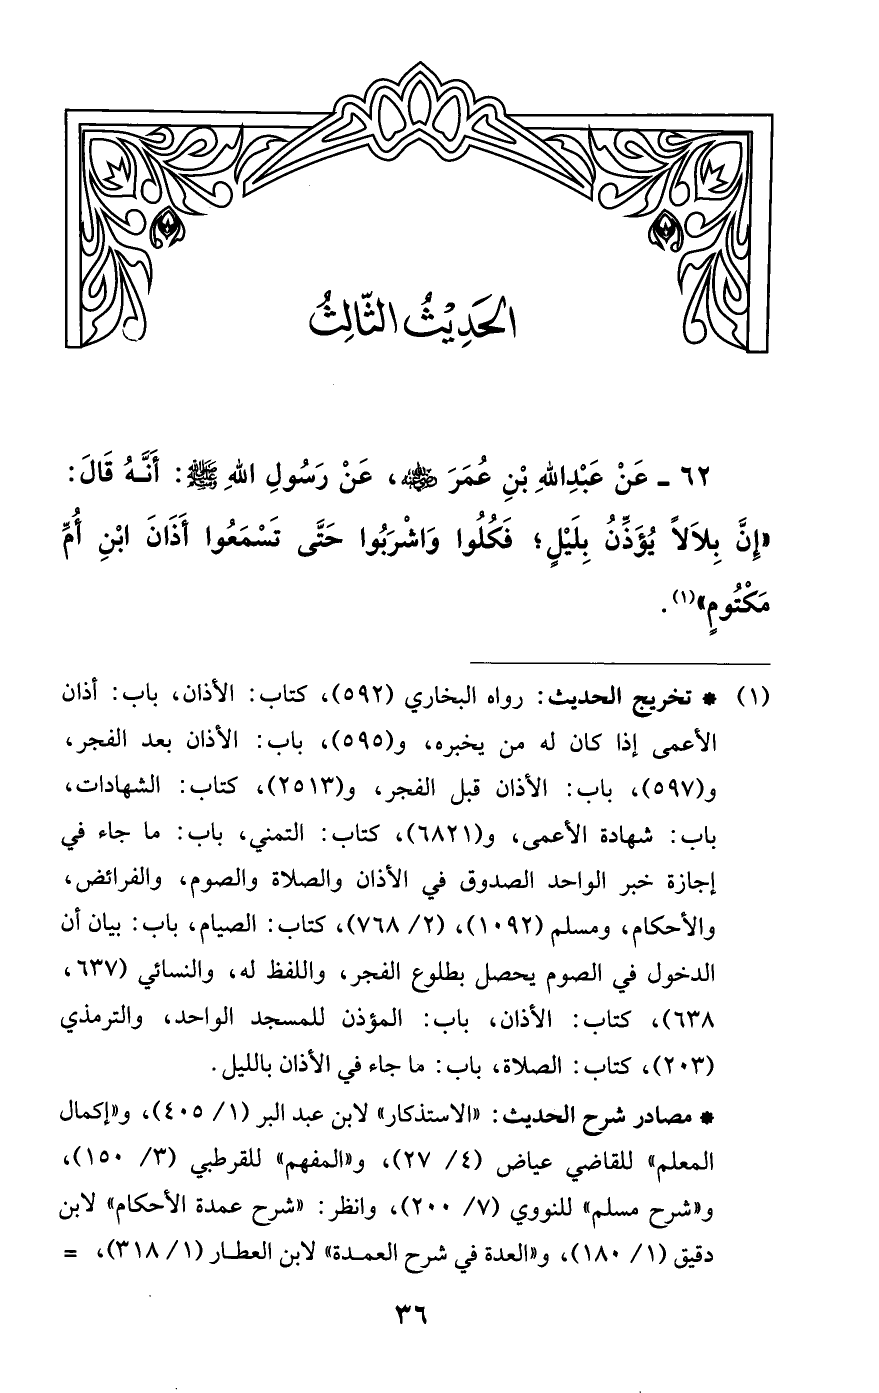 الحَدِيْثُ الثَّالِثُ
٦٢ - عَنْ عَبْدِاللهِ بْنِ عُمَرَ ﵄، عَنْ رَسُولِ اللهِ ﷺ: أَنَّهُ قَالَ:
«إِنَّ بِلاَلاً يُؤَذِّنُ بِلَيْلٍ؛ فَكُلُوا وَاشْرَبُوا حَتَّى تَسْمَعُوا أَذَانَ ابْنِ أُمِّ
مَكْتُومٍ»(١).
(١) * تخريج الحديث: رواه البخاري (٥٩٢)، كتاب: الأذان، باب: أذان
الأعمى إذا كان له من يخبره، و(٥٩٥)، باب: الأذان بعد الفجر،
و(٥٩٧)، باب: الأذان قبل الفجر، و(٢٥١٣)، كتاب: الشهادات،
باب: شهادة الأعمى، و(٦٨٢١)، كتاب: التمني، باب: ما جاء في
إجازة خبر الواحد الصدوق في الأذان والصلاة والصوم، والفرائض،
والأحكام، ومسلم (١٠٩٢)، (٢/ ٧٦٨)، كتاب: الصيام، باب: بيان أن
الدخول في الصوم يحصل بطلوع الفجر، واللفظ له، والنسائي (٦٣٧،
٦٣٨)، كتاب: الأذان، باب: المؤذن للمسجد الواحد، والترمذي
(٢٠٣)، كتاب: الصلاة، باب: ما جاء في الأذان بالليل.
* مصادر شرح الحديث: «الاستذكار» لابن عبد البر (١/ ٤٠٥)، و«إكمال
المعلم» للقاضي عياض (٤/ ٢٧)، و«المفهم» للقرطبي (٣/ ١٥٠)،
و«شرح مسلم» للنووي (٧/ ٢٠٠)، وانظر: «شرح عمدة الأحكام» لابن
دقيق (١/ ١٨٠)، و«العدة في شرح العمدة» لابن العطار (١/ ٣١٨)، =
٣٦